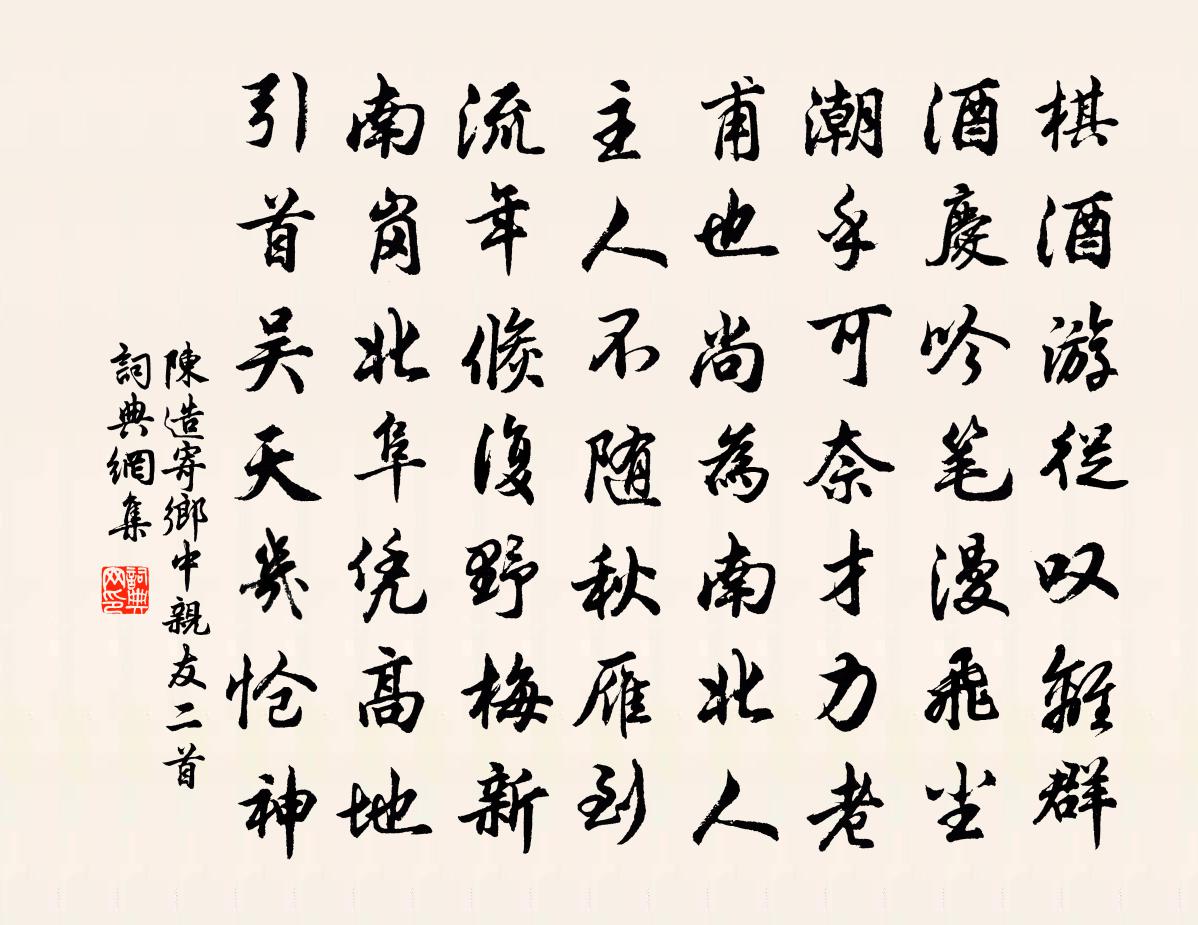 棋酒游従叹離群
酒慶吟笔漫飛尘
潮乎可奈才力老
甫也尚為南北人
主人不随秋雁到
流年倏復野梅新
南岗北阜凭高地
引首吴天幾怆神
陳造寄鄉中親友二首
詞典網集
詞典网印